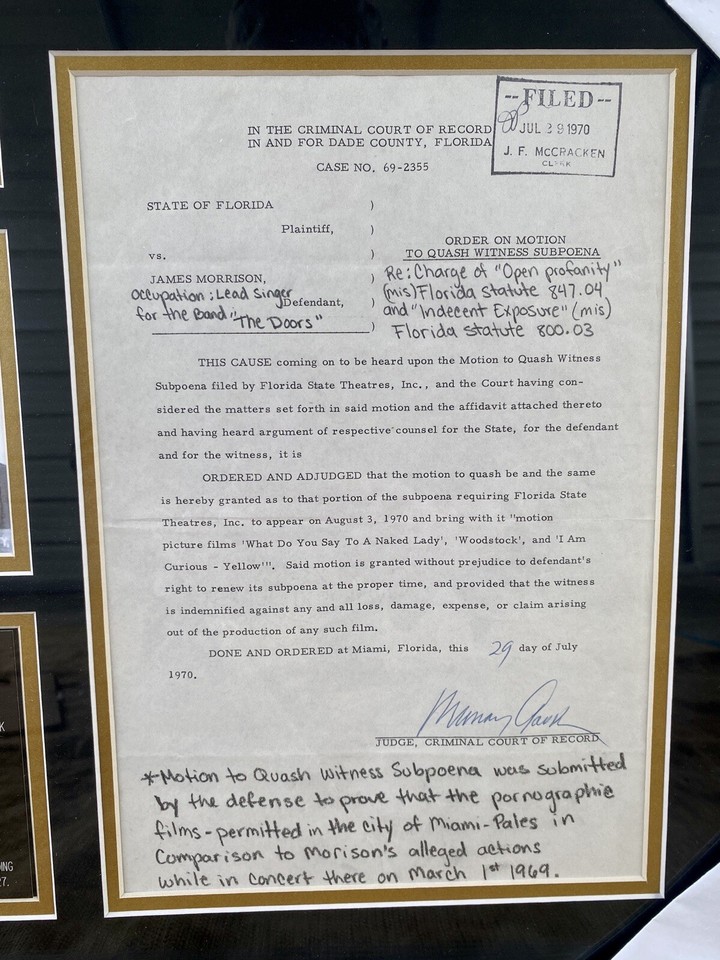 --FILED--
JUL 29 1970
J. F. McCRACKEN
CLERK
IN THE CRIMINAL COURT OF RECORD
IN AND FOR DADE COUNTY, FLORIDA
CASE NO. 69-2355
STATE OF FLORIDA )
Plaintiff, )
vs. )
JAMES MORRISON, )
Occupation: Lead Singer Defendant, )
for the Band: "The Doors" )
ORDER ON MOTION
TO QUASH WITNESS SUBPOENA
Re: Charge of "Open profanity"
(mis) Florida statute 847.04
and "Indecent Exposure" (mis)
Florida statute 800.03
THIS CAUSE coming on to be heard upon the Motion to Quash Witness
Subpoena filed by Florida State Theatres, Inc., and the Court having con-
sidered the matters set forth in said motion and the affidavit attached thereto
and having heard argument of respective counsel for the State, for the defendant
and for the witness, it is
ORDERED AND ADJUDGED that the motion to quash be and the same
is hereby granted as to that portion of the subpoena requiring Florida State
Theatres, Inc. to appear on August 3, 1970 and bring with it "motion
picture films 'What Do You Say To A Naked Lady', 'Woodstock', and 'I Am
Curious - Yellow'". Said motion is granted without prejudice to defendant's
right to renew its subpoena at the proper time, and provided that the witness
is indemnified against any and all loss, damage, expense, or claim arising
out of the production of any such film.
DONE AND ORDERED at Miami, Florida, this 29 day of July
1970.
JUDGE, CRIMINAL COURT OF RECORD
*Motion to Quash Witness Subpoena was submitted
by the defense to prove that the pornographic
films-permitted in the city of Miami-Pales in
Comparison to Morison's alleged actions
while in concert there on March 1st 1969.